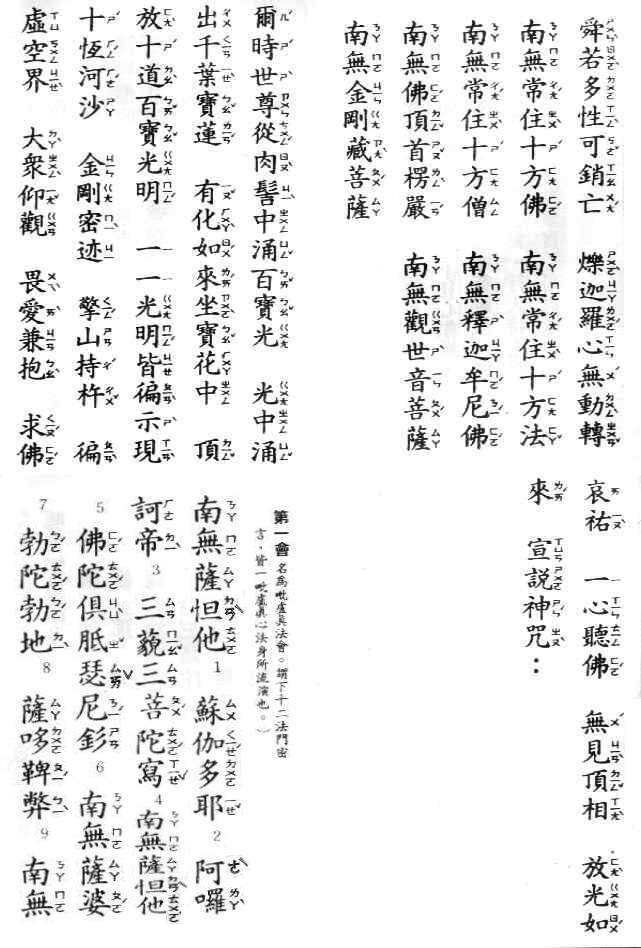 舜若多性可銷亡　爍迦羅心無動轉
南無常住十方佛　南無常住十方法
南無常住十方僧　南無釋迦牟尼佛
南無佛頂首楞嚴　南無觀世音菩薩
南無金剛藏菩薩
爾時世尊從肉髻中涌百寶光　光中涌
出千葉寶蓮　有化如來坐寶花中　頂
放十道百寶光明　一一光明皆徧示現
十恆河沙　金剛密迹　擎山持杵　徧
虛空界　大眾仰觀　畏愛兼抱　求佛
哀祐　一心聽佛　無見頂相　放光如
來　宣說神咒：
第一會 名為毗盧真法會。謂下十二法門密
言，皆一毗盧真心法身所流演也。）
南無薩怛他 1 蘇伽多耶 2 阿囉
訶帝 3 三藐三菩陀寫 4 南無薩怛他
5 佛陀俱胝瑟尼釤 6 南無薩婆
7 勃陀勃地 8 薩哆鞞弊 9 南無